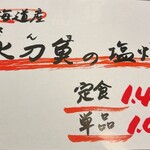 海道産
ん
刀魚の塩
定食 1.4
単品 1.